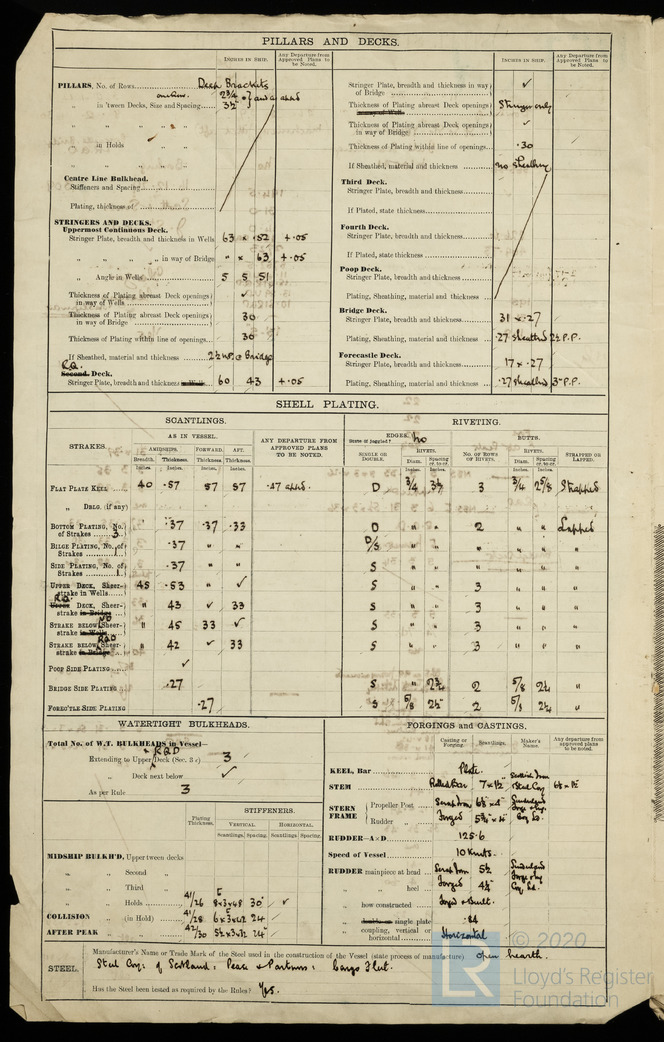 PILLARS AND DECKS.
INCHES IN SHIP.
Any Departure from Approved Plans to be Noted.
PILLARS, No. of Rows, Deep Brackets
in 'tween Decks, Size and Spacing
" " " "
" in Holds "
" " " "
Centre Line Bulkhead.
Stiffeners and Spacing
Plating, thickness of
STRINGERS AND DECKS.
Uppermost Continuous Deck.
Stringer Plate, breadth and thickness in Wells 63 x .52 +.05
" " " " in way of Bridge " x 63 +.05
" Angle in Wells 5 5 51
Thickness of Plating abreast Deck openings in way of Wells ✓
Thickness of Plating abreast Deck openings in way of Bridge 30
Thickness of Plating within line of openings 30
If Sheathed, material and thickness 2½ @ Bridge
R.Q. Second Deck.
Stringer Plate, breadth and thickness in Wells 60 43 +.05
INCHES IN SHIP.
Any Departure from Approved Plans to be Noted.
Stringer Plate, breadth and thickness in way of Bridge ✓
Thickness of Plating abreast Deck openings Stringer only
Thickness of Plating abreast Deck openings in way of Bridge ✓
Thickness of Plating within line of openings .30
If Sheathed, material and thickness no sheathing
Third Deck.
Stringer Plate, breadth and thickness
If Plated, state thickness
Fourth Deck.
Stringer Plate, breadth and thickness
If Plated, state thickness
Poop Deck.
Stringer Plate, breadth and thickness
Plating, Sheathing, material and thickness
Bridge Deck.
Stringer Plate, breadth and thickness 31 x .27
Plating, Sheathing, material and thickness .27 sheathed 2½ P.P.
Forecastle Deck.
Stringer Plate, breadth and thickness 17 x .27
Plating, Sheathing, material and thickness .27 sheathed 3" P.P.
SHELL PLATING.
SCANTLINGS.
RIVETING.
STRAKES.
AS IN VESSEL.
AMIDSHIPS. FORWARD. AFT.
Breadth. Thickness. Thickness. Thickness.
Inches. Inches. Inches. Inches.
ANY DEPARTURE FROM APPROVED PLANS TO BE NOTED.
EDGES. no
State if Joggled?
SINGLE OR DOUBLE.
RIVETS.
Diam. Spacing cr. to cr.
Inches. Inches.
BUTTS.
NO. OF ROWS OF RIVETS.
RIVETS.
Diam. Spacing cr. to cr.
Inches. Inches.
STRAPPED OR LAPPED.
FLAT PLATE KEEL 40 .57 57 57 D ¾ 3 ¾ 2⅝ Strapped
" DBLG. (if any)
BOTTOM PLATING, No. of Strakes 3 .37 .37 .33 D " " 2 " " Lapped
BILGE PLATING, No. of Strakes 1 .37 " " D/S " " " " " "
SIDE PLATING, No. of Strakes 1 .37 " " S " " " " " "
UPPER DECK, Sheerstrake in Wells 45 .53 " ✓ S " " 3 " " "
R.Q. UPPER DECK, Sheerstrake in Bridge " 43 ✓ 33 S " " 3 " " "
STRAKE BELOW Sheerstrake in Wells " 45 33 ✓ S " " 3 " " "
STRAKE BELOW RQD Sheerstrake in Bridge " 42 ✓ 33 S " " 3 " " "
POOP SIDE PLATING ✓
BRIDGE SIDE PLATING .27 S " 2¾ 2 ⅝ 2¼ "
FORE'C'TLE SIDE PLATING .27 S ⅝ 2½ 2 ⅝ 2¼ "
WATERTIGHT BULKHEADS.
Total No. of W.T. BULKHEADS in Vessel—
Extending to Upper & RQD Deck (Sec. 3 c) 3
" Deck next below ✓
As per Rule 3
Plating Thickness.
STIFFENERS.
VERTICAL. HORIZONTAL.
Scantlings. Spacing. Scantlings. Spacing.
MIDSHIP BULKH'D, Upper tween decks
" " Second "
" " Third "
" " Holds 41/26 8x3x48 30" ✓
COLLISION " (in Hold) 41/28 6x3x42 24"
AFTER PEAK " " 42/30 5½x3x42 24"
FORGINGS and CASTINGS.
Casting or Forging. Scantlings. Maker's Name. Any departure from approved plans to be noted.
KEEL, Bar Plate.
STEM Rolled Bar 7 x 1½ Scottish Iron & Steel Coy
STERN FRAME
Propeller Post Scrap Iron Sunderland Forge & Eng. Coy Ld.
Rudder " Forged
RUDDER—A×D 125.6
Speed of Vessel 10 Knots.
RUDDER mainpiece at head Scrap Iron 5½ Sunderland Forge & Eng Coy Ld.
" " heel Forged 4½
" how constructed Forged & Built.
" double or single plate .84
" coupling, vertical or horizontal Horizontal
STEEL.
Manufacturer's Name or Trade Mark of the Steel used in the construction of the Vessel (state process of manufacture) open hearth.
Steel Coy: of Scotland: Pease & Partners: Cargo Fleet.
Has the Steel been tested as required by the Rules? Yes.
LR © 2020
Lloyd's Register
Foundation